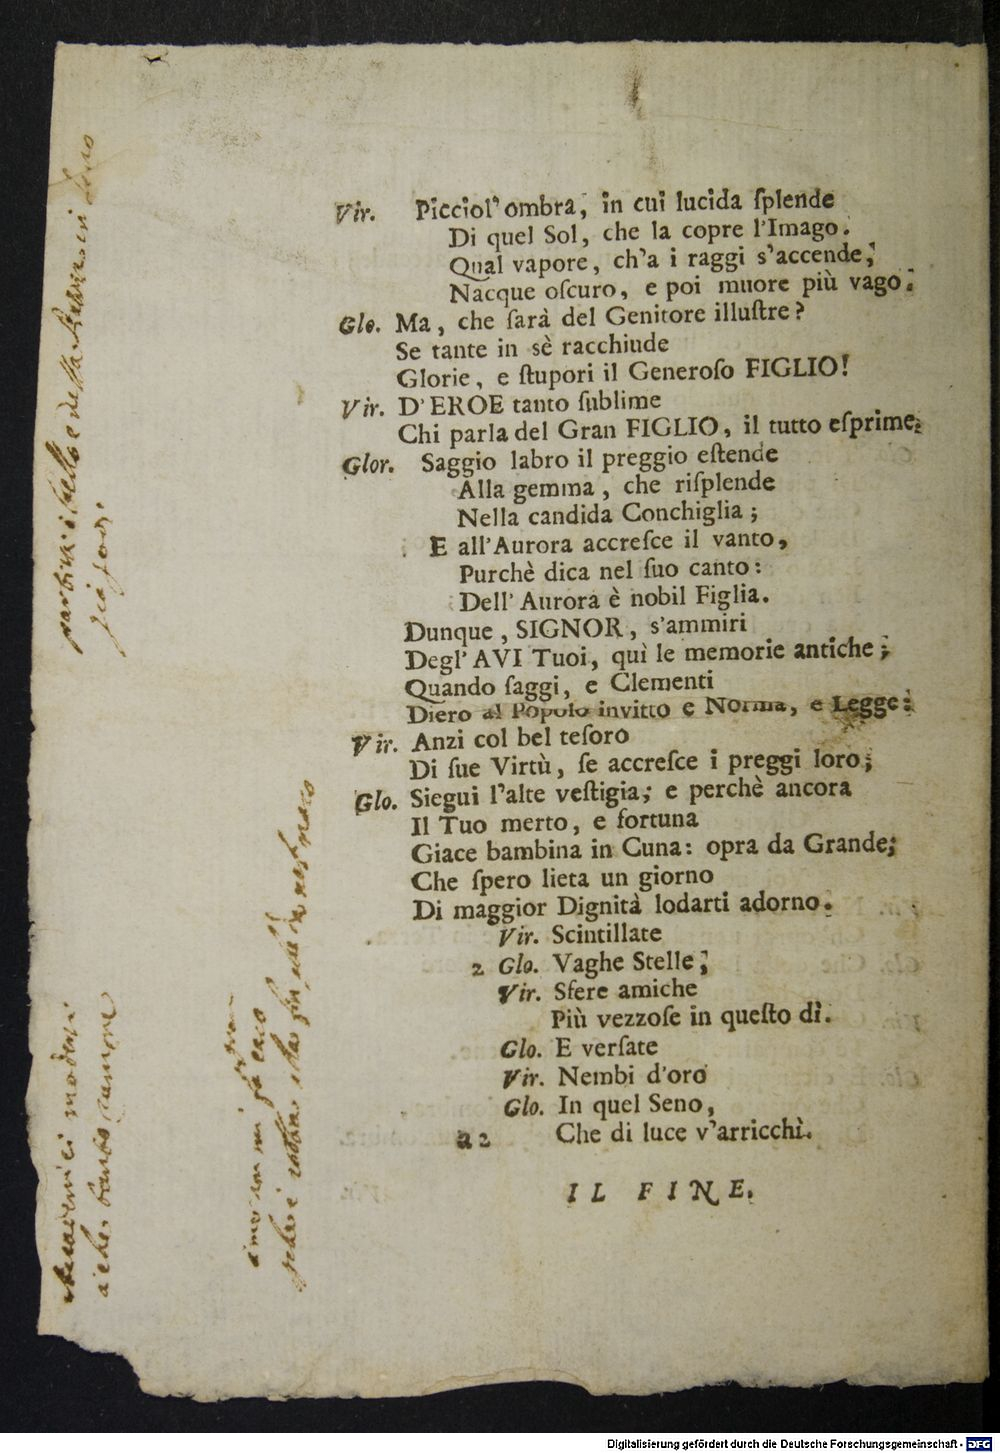 Vir. Picciol' ombra, in cui lucida ſplende
Di quel Sol, che la copre l'Imago.
Qual vapore, ch'a i raggi s'accende,
Nacque oſcuro, e poi muore più vago.
Glo. Ma, che ſarà del Genitore illuſtre?
Se tante in sè racchiude
Glorie, e ſtupori il Generoſo FIGLIO!
Vir. D'EROE tanto ſublime
Chi parla del Gran FIGLIO, il tutto eſprime.
Glor. Saggio labro il preggio eſtende
Alla gemma, che riſplende
Nella candida Conchiglia;
E all'Aurora accreſce il vanto,
Purchè dica nel ſuo canto:
Dell' Aurora è nobil Figlia.
Dunque, SIGNOR, s'ammiri
Degl' AVI Tuoi, quì le memorie antiche;
Quando ſaggi, e Clementi
Diero al Popolo invitto e Norma, e Legge:
Vir. Anzi col bel teſoro
Di ſue Virtù, ſe accreſce i preggi loro;
Glo. Siegui l'alte veſtigia; e perchè ancora
Il Tuo merto, e fortuna
Giace bambina in Cuna: opra da Grande;
Che ſpero lieta un giorno
Di maggior Dignità lodarti adorno.
Vir. Scintillate
2 Glo. Vaghe Stelle;
Vir. Sfere amiche
Più vezzoſe in queſto dì.
Glo. E verſate
Vir. Nembi d'oro
Glo. In quel Seno,
a 2 Che di luce v'arricchì.
IL FINE.
Digitalisierung gefördert durch die Deutsche Forschungsgemeinschaft - DFG